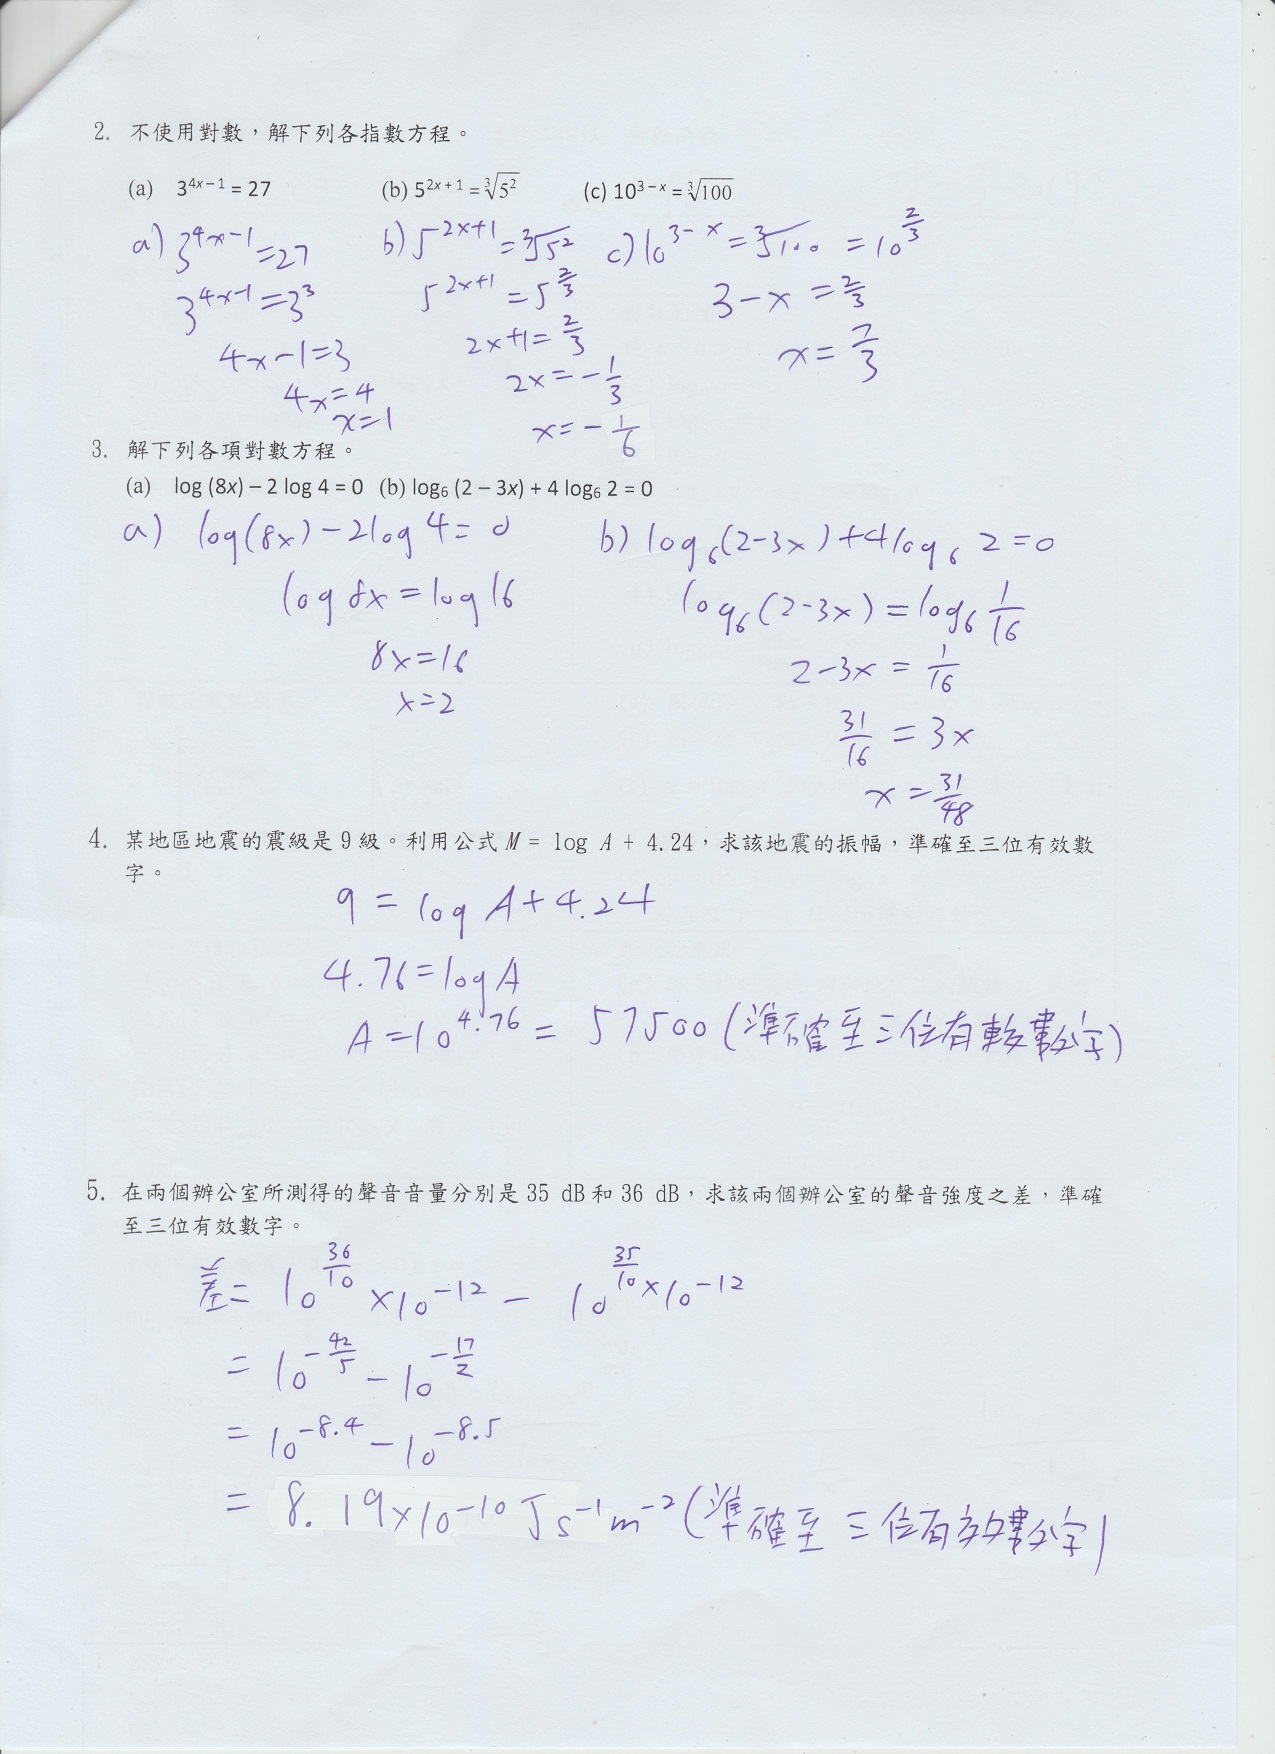 2. 不使用對數，解下列各指數方程。
(a) 3^{4x−1} = 27 (b) 5^{2x+1} = ∛5² (c) 10^{3−x} = ∛100
a) 3^{4x−1} = 27
3^{4x−1} = 3³
4x−1 = 3
4x = 4
x = 1
b) 5^{2x+1} = ∛5²
5^{2x+1} = 5^{2/3}
2x+1 = 2/3
2x = −1/3
x = −1/6
c) 10^{3−x} = ∛100 = 10^{2/3}
3−x = 2/3
x = 7/3
3. 解下列各項對數方程。
(a) log (8x) – 2 log 4 = 0 (b) log₆ (2 – 3x) + 4 log₆ 2 = 0
a) log(8x) − 2log 4 = 0
log 8x = log 16
8x = 16
x = 2
b) log₆(2−3x) + 4log₆ 2 = 0
log₆(2−3x) = log₆ 1/16
2−3x = 1/16
31/16 = 3x
x = 31/48
4. 某地區地震的震級是 9 級。利用公式 M = log A + 4.24，求該地震的振幅，準確至三位有效數
字。
9 = log A + 4.24
4.76 = log A
A = 10^{4.76} = 57500 (準確至三位有效數字)
5. 在兩個辦公室所測得的聲音音量分別是 35 dB 和 36 dB，求該兩個辦公室的聲音強度之差，準確
至三位有效數字。
差 = 10^{36/10} × 10^{−12} − 10^{35/10} × 10^{−12}
= 10^{−42/5} − 10^{−17/2}
= 10^{−8.4} − 10^{−8.5}
= 8.19×10^{−10} J s^{−1} m^{−2} (準確至三位有效數字)